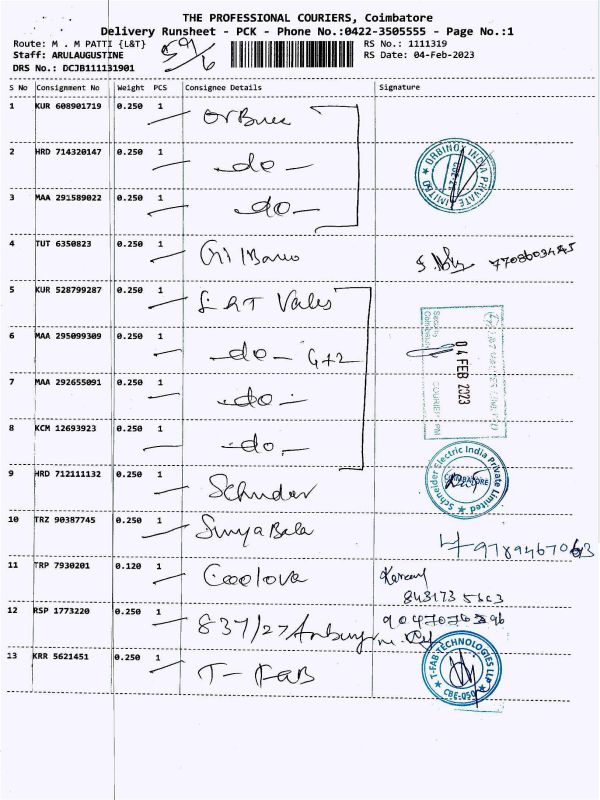 THE PROFESSIONAL COURIERS, Coimbatore
Delivery Runsheet - PCK - Phone No.:0422-3505555 - Page No.:1
Route: M . M PATTI {L&T}
RS No.: 1111319
Staff: ARULAUGUSTINE
RS Date: 04-Feb-2023
DRS No.: DCJB111131901
S No Consignment No Weight PCS Consignee Details Signature
1 KUR 608901719 0.250 1
2 HRD 714320147 0.250 1 -do-
ORBINOX INDIA PRIVATE LIMITED
3 MAA 291589022 0.250 1 -do-
4 TUT 6350823 0.250 1
5 KUR 528799287 0.250 1 L&T Valves
6 MAA 295099309 0.250 1 -do- G+2
04 FEB 2023
7 MAA 292655091 0.250 1 -do-
8 KCM 12693923 0.250 1 -do-
Schneider Electric India Private Limited
COIMBATORE
9 HRD 712111132 0.250 1
10 TRZ 90387745 0.250 1 Surya Bala
11 TRP 7930201 0.120 1
12 RSP 1773220 0.250 1 837/27
13 KRR 5621451 0.250 1 T-FAB
T-FAB TECHNOLOGIES LLP
CBE-050